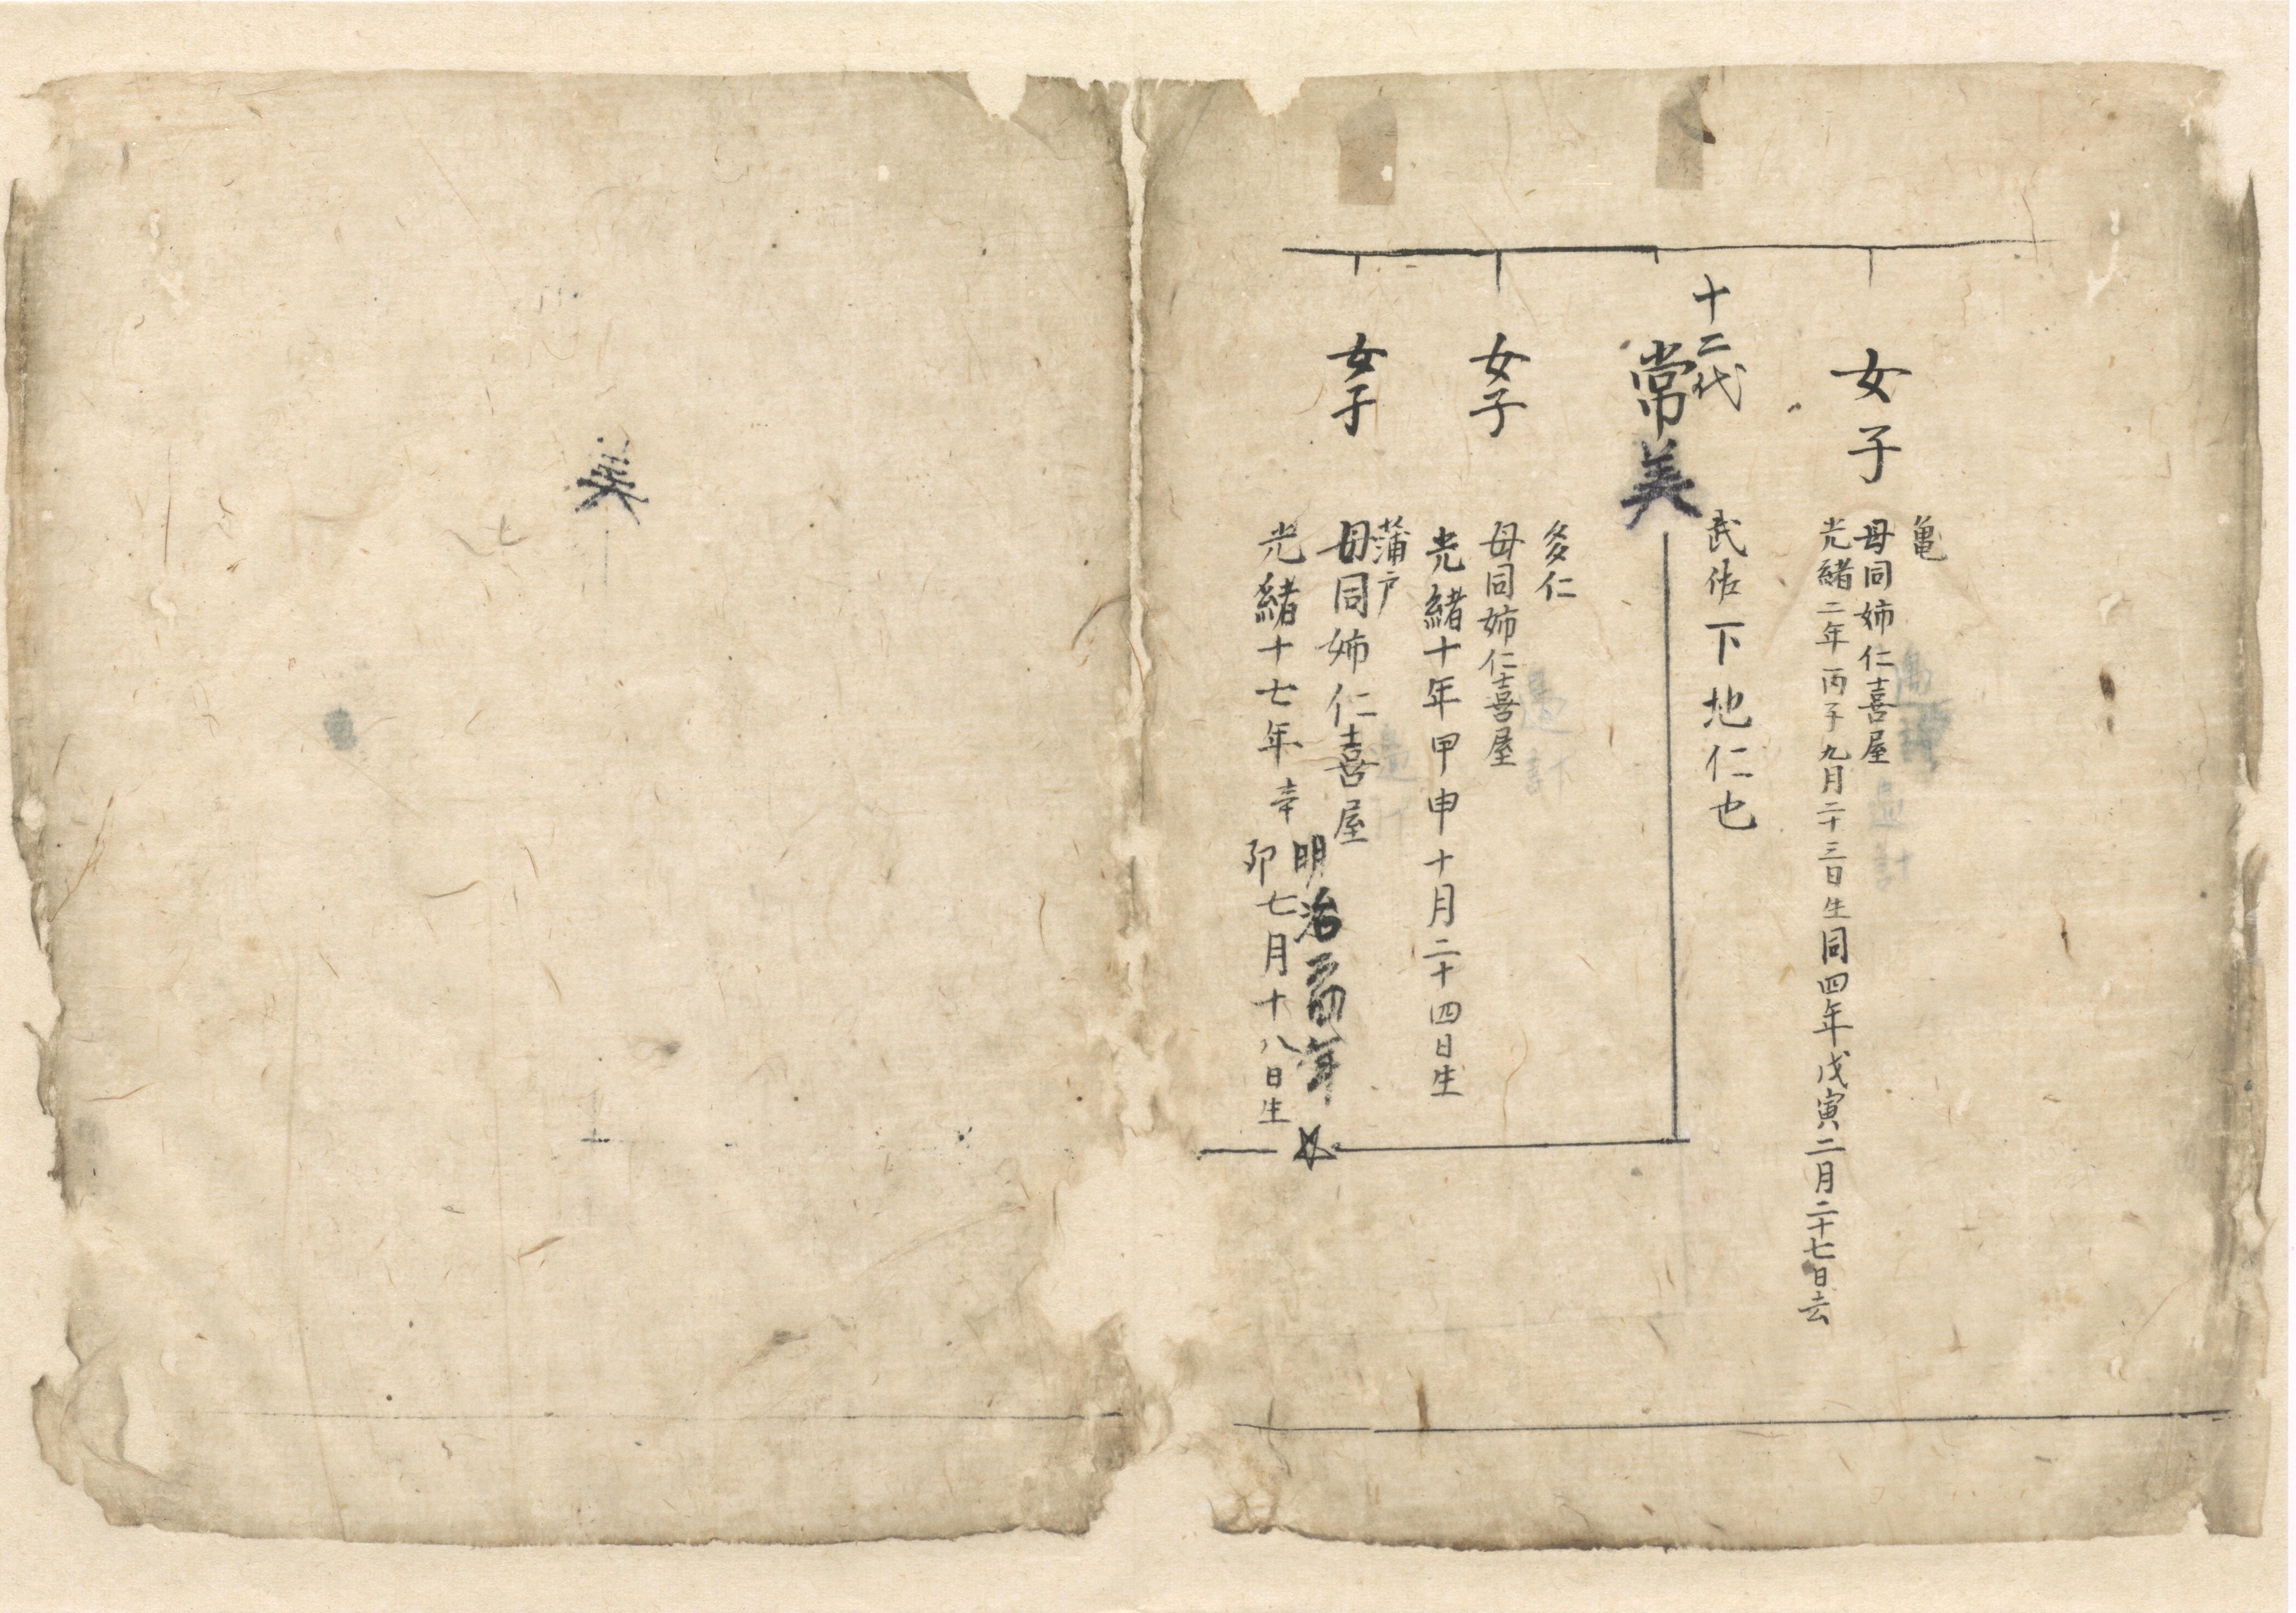 女子
亀
母同姉仁喜屋
光緒二年丙子九月二十三日生同四年戊寅二月二十七日去
十二代
常美
武佐下地仁也
女子
多仁
母同姉仁喜屋
光緒十年甲申十月二十四日生
女子
蒲戸
母同姉仁喜屋
明治
年
光緒十七年辛卯七月十八日生
美